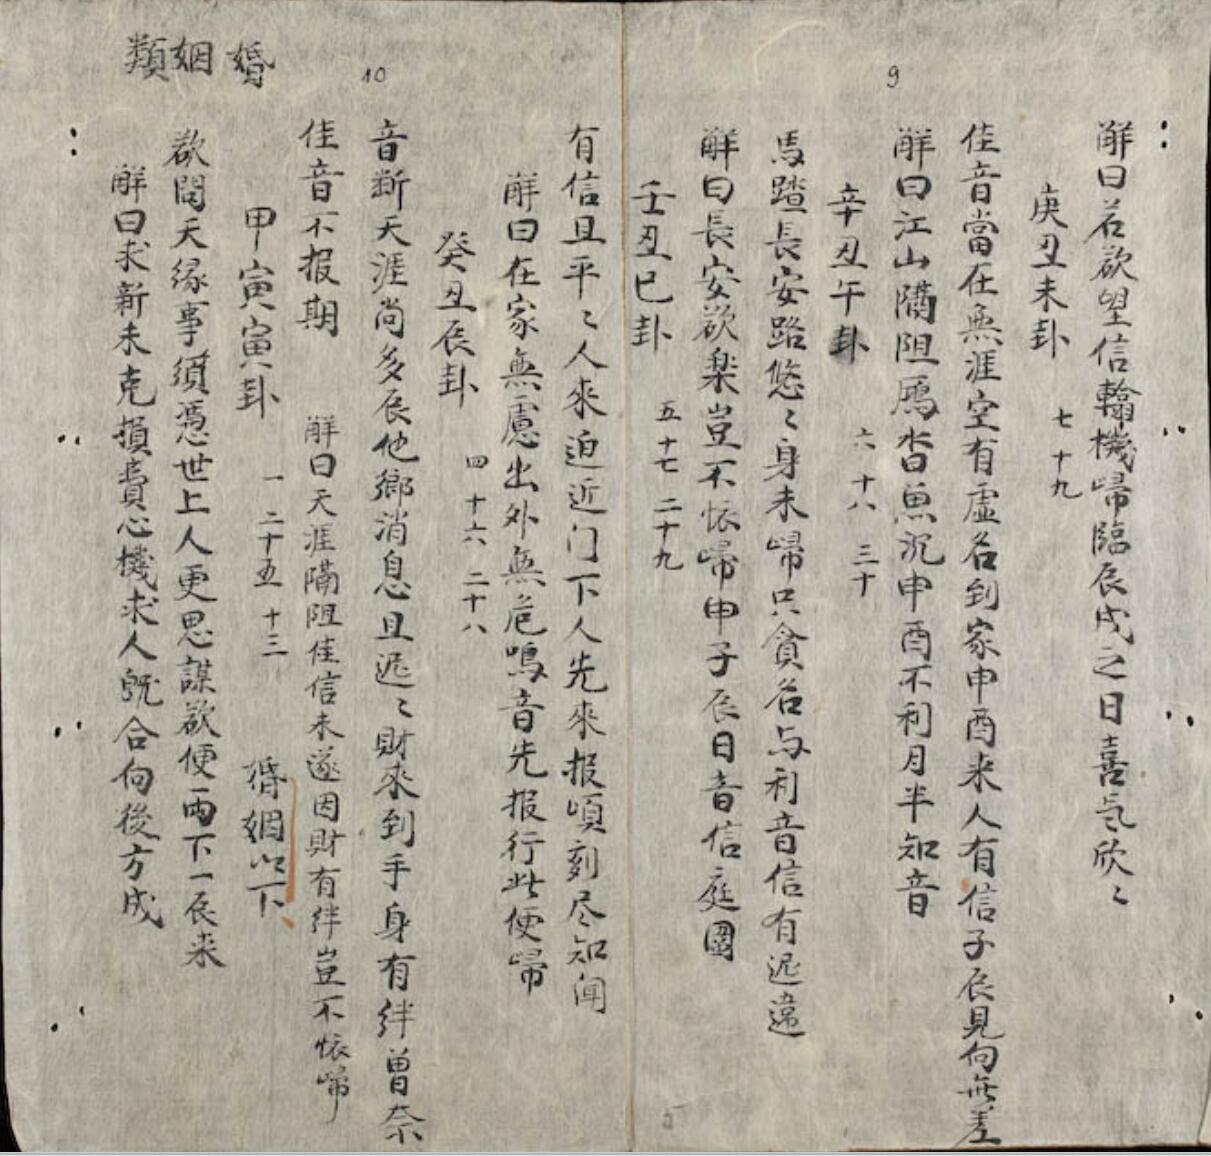 9
解曰若欲望信翰機歸臨辰戌之日喜氣欣〻
庚丑未卦 七 十九
佳音當在無涯空有虛名到家申酉來人有信子辰見向無差
解曰江山隔阻鴈杳魚沉申酉不利月半知音
辛丑午卦 六 十八 三十
馬踏長安路悠〻身未歸只貪名与利音信有迟違
解曰長安欲楽豈不怀歸申子辰日音信庭圍
壬丑巳卦 五 十七 二十九
有信且平〻人來迫近门下人先來报頃刻尽知闻
解曰在家無慮出外無危鳴音先报行此便歸
癸丑辰卦 四 十六 二十八
10
音断天涯尚多辰他鄉消息且迟〻財來到手身有絆曾奈
佳音不报期 解曰天涯隔阻佳信未遂因財有絆豈不怀歸
甲寅寅卦 一 二十五 十三 婚姻以下
欲問天缘事須憑世上人更思謀欲便雨下一辰来
解曰求新未克損費心機求人既合向後方成
婚姻類